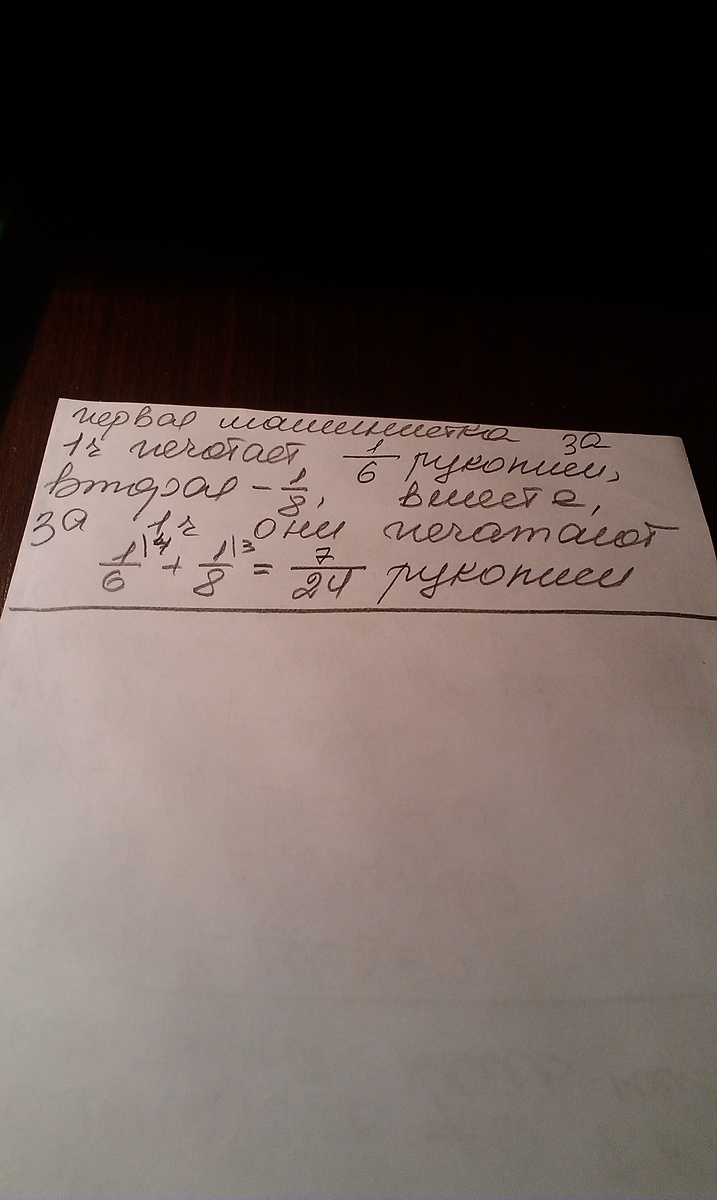 первая машинистка за
1ч печатает 1/6 рукописи,
вторая - 1/8, вместе,
за 1ч они печатают
1/6|4 + 1/8|3 = 7/24 рукописи